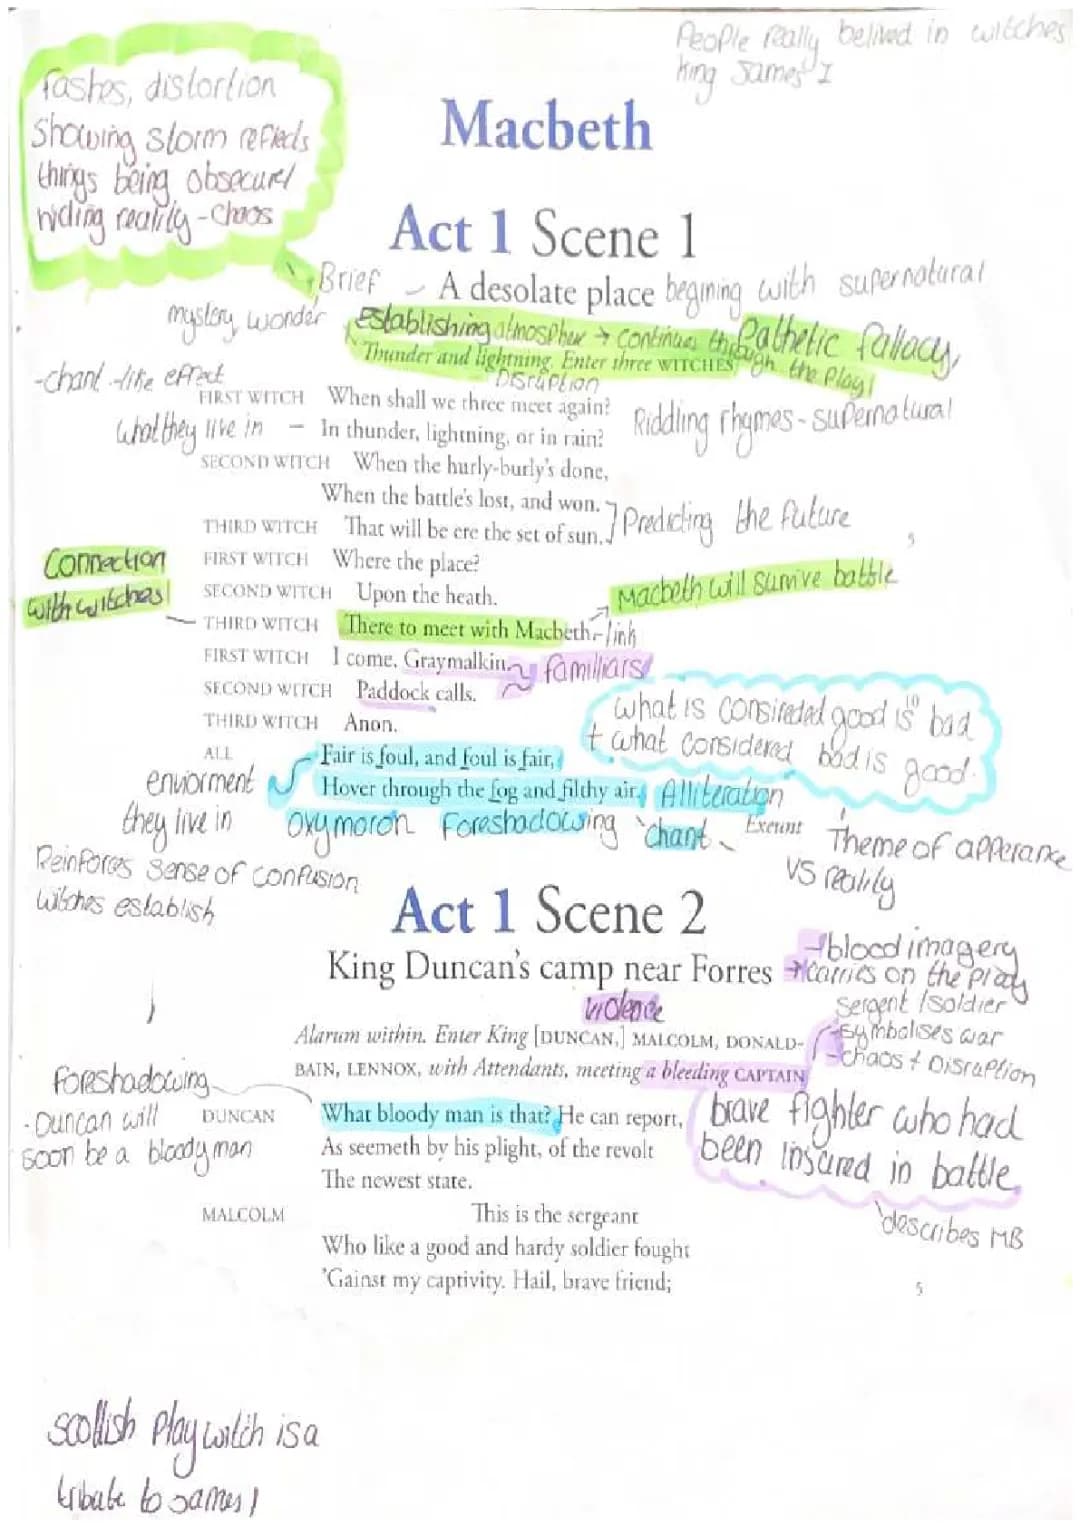 People really belived in witches
King James I
fashes, distortion
Showing storm reflects
things being obsecure/
hiding reality - Chaos
Macbeth
Act 1 Scene 1
Brief - A desolate place begining with supernatural
mystery, wonder
Establishing atmosphere → continues through the play!
Pathetic fallacy,
Thunder and lightning. Enter three WITCHES
Disruption
- chant - like effect
FIRST WITCH When shall we three meet again?
what they live in - In thunder, lightning, or in rain?
Riddling rhymes - supernatural
SECOND WITCH When the hurly-burly's done,
When the battle's lost, and won.
THIRD WITCH That will be ere the set of sun.
Predicting the future
5
Connection
with witches!
FIRST WITCH Where the place?
SECOND WITCH Upon the heath.
Macbeth will survive battle
THIRD WITCH There to meet with Macbeth. - link
FIRST WITCH I come, Graymalkin.
familliars!
SECOND WITCH Paddock calls.
THIRD WITCH Anon.
10
what is consireded good is bad
+ what considered bad is good.
ALL Fair is foul, and foul is fair,
Hover through the fog and filthy air.
Alliteration
enviorment
they live in
Oxymoron Foreshadowing chant
Exeunt
Theme of apperance
VS reality
Reinforces sense of confusion
witches establish
Act 1 Scene 2
King Duncan's camp near Forres
→ blood imagery
→ carries on the play
violence
Sergent / soldier
- symbolises war
- chaos + Disruption
Alarum within. Enter King [DUNCAN,] MALCOLM, DONALD-
BAIN, LENNOX, with Attendants, meeting a bleeding CAPTAIN
foreshadowing
- Duncan will
soon be a bloody man
DUNCAN What bloody man is that? He can report,
As seemeth by his plight, of the revolt
The newest state.
brave fighter who had
been insured in battle.
describes MB
MALCOLM This is the sergeant
Who like a good and hardy soldier fought
'Gainst my captivity. Hail, brave friend;
5
scottish play witch is a
tribute to James I